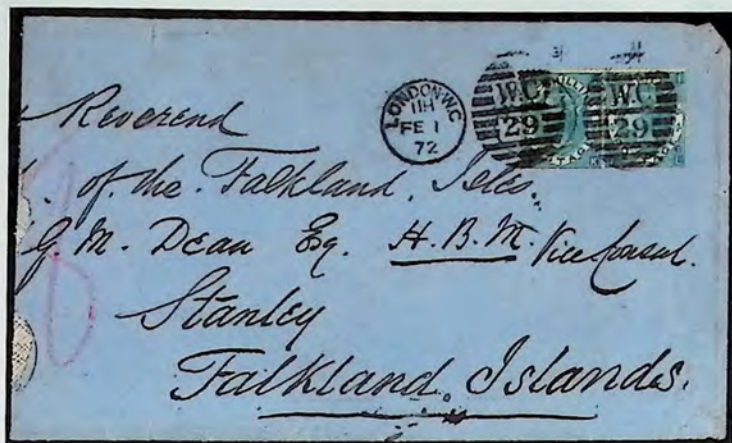 LONDON·W.C
FE 1
72
W.C
29
W.C
29
Reverend
of the. Falkland. Isles.
G. M. Dean Esq. H. B. M. Vice Consul.
Stanley
Falkland. Islands.